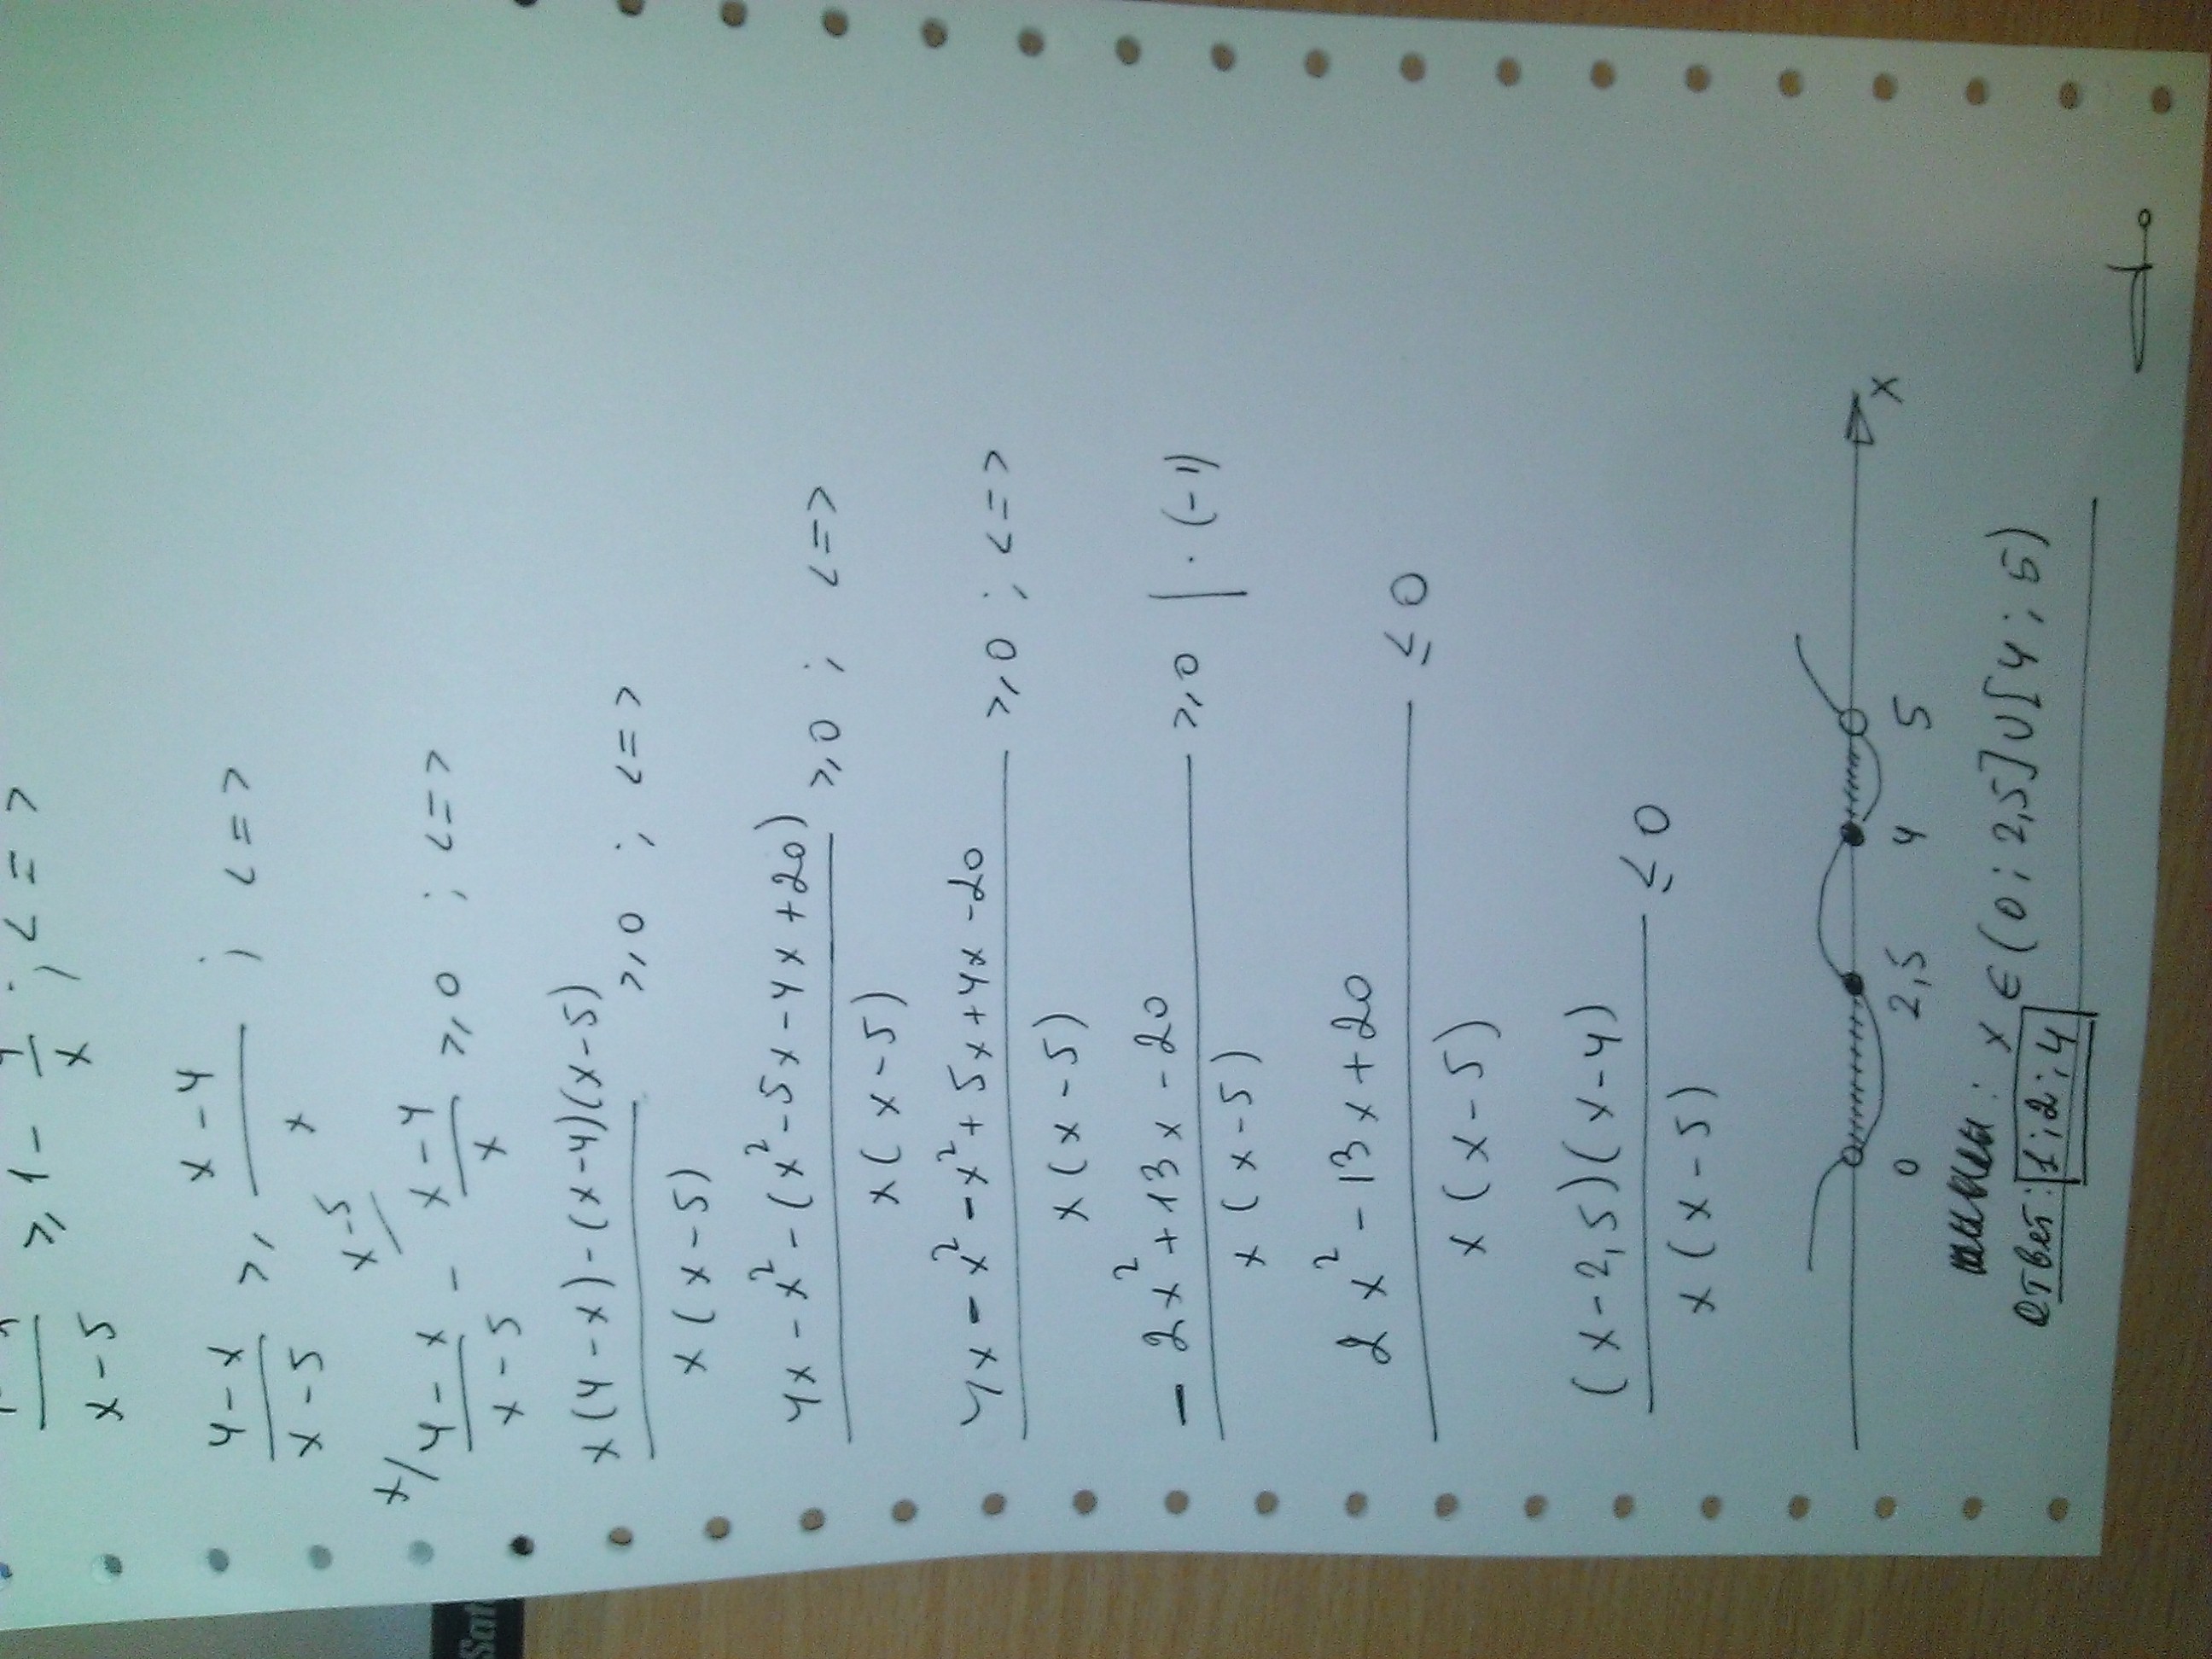 x-5 ≥ 1 - 4/x ; <=>
(4-x)/(x-5) ≥ (x-4)/x ; <=>
x/ (4-x)/(x-5) - x-5/ (x-4)/x ≥ 0 ; <=>
(x(4-x)-(x-4)(x-5))/(x(x-5)) ≥ 0 ; <=>
(4x-x²-(x²-5x-4x+20))/(x(x-5)) ≥ 0 ; <=>
(4x-x²-x²+5x+4x-20)/(x(x-5)) ≥ 0 ; <=>
(-2x²+13x-20)/(x(x-5)) ≥ 0 | · (-1)
(2x²-13x+20)/(x(x-5)) ≤ 0
((x-2,5)(x-4))/(x(x-5)) ≤ 0
0 2,5 4 5 x
x ∈ (0; 2,5] U [4; 5)
Ответ: 1; 2; 4